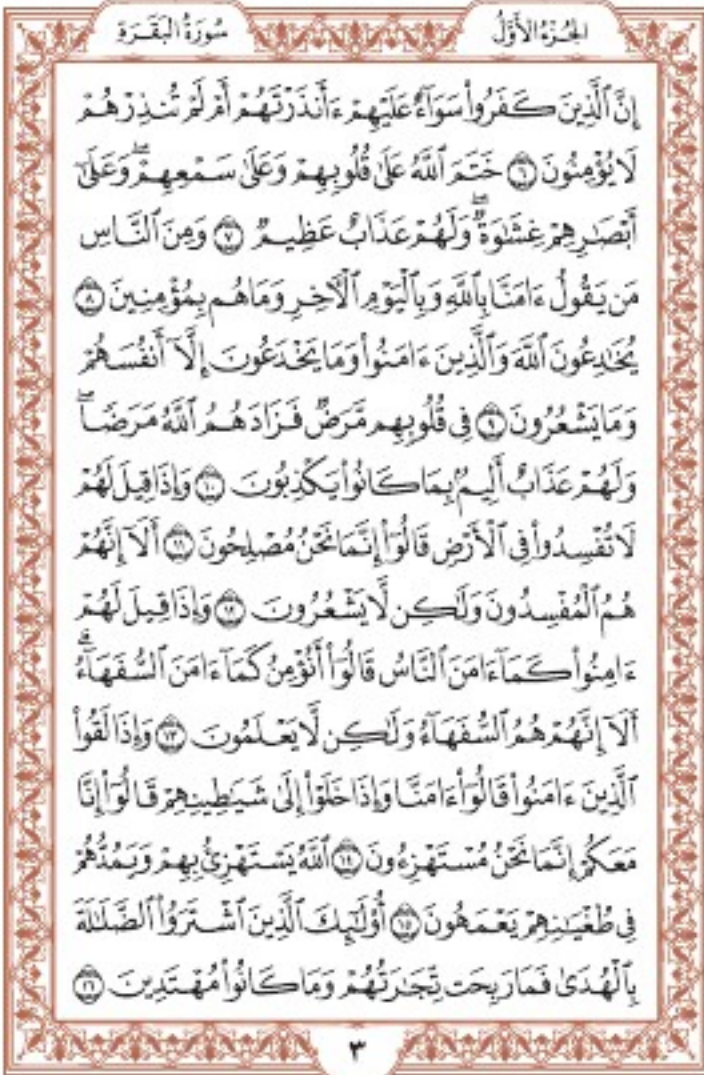 الجُزْءُ الأَوَّلُ
سُورَةُ البَقَرَةِ
إِنَّ ٱلَّذِينَ كَفَرُواْ سَوَآءٌ عَلَيْهِمْ ءَأَنذَرْتَهُمْ أَمْ لَمْ تُنذِرْهُمْ
لَا يُؤْمِنُونَ ٦ خَتَمَ ٱللَّهُ عَلَىٰ قُلُوبِهِمْ وَعَلَىٰ سَمْعِهِمْۖ وَعَلَىٰٓ
أَبْصَٰرِهِمْ غِشَٰوَةٌۖ وَلَهُمْ عَذَابٌ عَظِيمٌ ٧ وَمِنَ ٱلنَّاسِ
مَن يَقُولُ ءَامَنَّا بِٱللَّهِ وَبِٱلْيَوْمِ ٱلْأَخِرِ وَمَا هُم بِمُؤْمِنِينَ ٨
يُخَٰدِعُونَ ٱللَّهَ وَٱلَّذِينَ ءَامَنُواْ وَمَا يَخْدَعُونَ إِلَّآ أَنفُسَهُمْ
وَمَا يَشْعُرُونَ ٩ فِى قُلُوبِهِم مَّرَضٌ فَزَادَهُمُ ٱللَّهُ مَرَضًاۖ
وَلَهُمْ عَذَابٌ أَلِيمٌۢ بِمَا كَانُواْ يَكْذِبُونَ ١٠ وَإِذَا قِيلَ لَهُمْ
لَا تُفْسِدُواْ فِى ٱلْأَرْضِ قَالُوٓاْ إِنَّمَا نَحْنُ مُصْلِحُونَ ١١ أَلَآ إِنَّهُمْ
هُمُ ٱلْمُفْسِدُونَ وَلَٰكِن لَّا يَشْعُرُونَ ١٢ وَإِذَا قِيلَ لَهُمْ
ءَامِنُواْ كَمَآ ءَامَنَ ٱلنَّاسُ قَالُوٓاْ أَنُؤْمِنُ كَمَآ ءَامَنَ ٱلسُّفَهَآءُۗ
أَلَآ إِنَّهُمْ هُمُ ٱلسُّفَهَآءُ وَلَٰكِن لَّا يَعْلَمُونَ ١٣ وَإِذَا لَقُواْ
ٱلَّذِينَ ءَامَنُواْ قَالُوٓاْ ءَامَنَّا وَإِذَا خَلَوْاْ إِلَىٰ شَيَٰطِينِهِمْ قَالُوٓاْ إِنَّا
مَعَكُمْ إِنَّمَا نَحْنُ مُسْتَهْزِءُونَ ١٤ ٱللَّهُ يَسْتَهْزِئُ بِهِمْ وَيَمُدُّهُمْ
فِى طُغْيَٰنِهِمْ يَعْمَهُونَ ١٥ أُوْلَٰٓئِكَ ٱلَّذِينَ ٱشْتَرَوُاْ ٱلضَّلَٰلَةَ
بِٱلْهُدَىٰ فَمَا رَبِحَت تِّجَٰرَتُهُمْ وَمَا كَانُواْ مُهْتَدِينَ ١٦
٣